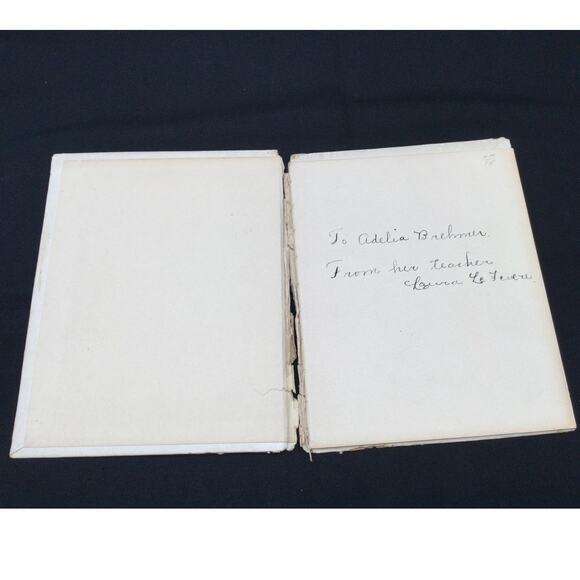 To Adelia Brehmer.
From her teacher
Laura Le Fevre.